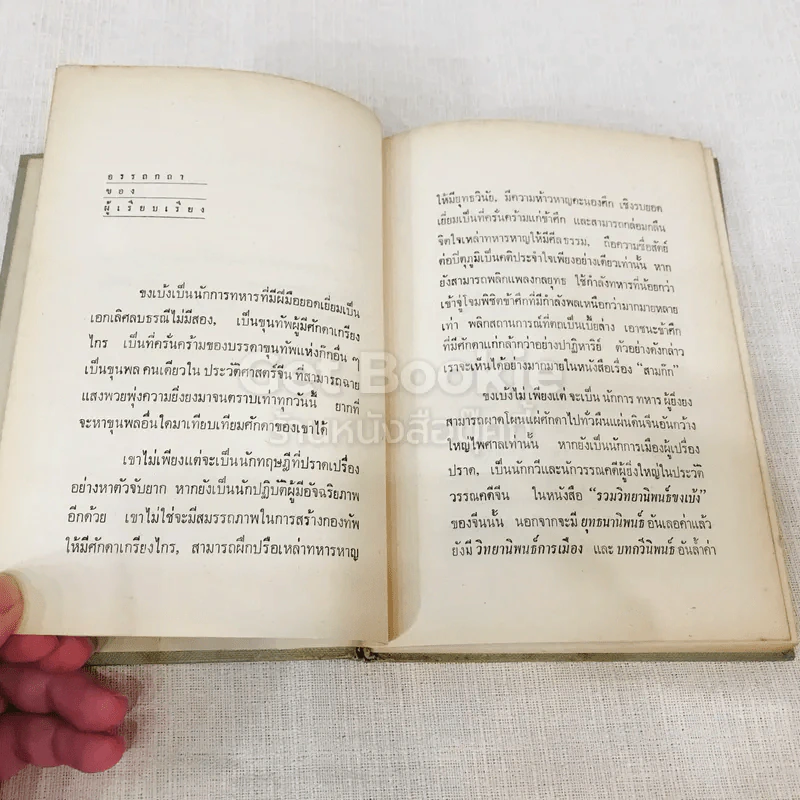 อรรถกถา
ของ
ผู้เรียบเรียง
ขงเบ้งเป็นนักการทหารที่มีฝีมือยอดเยี่ยมเป็น
เอกเลิศลบธรณีไม่มีสอง, เป็นขุนทัพผู้มีศักดาเกรียง
ไกร เป็นที่ครั่นคร้ามของบรรดาขุนทัพแห่งก๊กอื่น ๆ
เป็นขุนพล คนเดียวใน ประวัติศาสตร์จีน ที่สามารถฉาย
แสงพวยพุ่งความยิ่งยงมาจนตราบเท่าทุกวันนี้ ยากที่
จะหาขุนพลอื่นใดมาเทียบเทียมศักดาของเขาได้
เขาไม่เพียงแต่จะเป็นนักทฤษฎีที่ปราดเปรื่อง
อย่างหาตัวจับยาก หากยังเป็นนักปฏิบัติผู้มีอัจฉริยภาพ
อีกด้วย เขาไม่ใช่จะมีสมรรถภาพในการสร้างกองทัพ
ให้มีศักดาเกรียงไกร, สามารถฝึกปรือเหล่าทหารหาญ
ให้มียุทธวินัย, มีความห้าวหาญคะนองศึก เชิงรบยอด
เยี่ยมเป็นที่ครั่นคร้ามแก่ข้าศึก และสามารถกล่อมกลืน
จิตใจเหล่าทหารหาญให้มีศีลธรรม, ถือความซื่อสัตย์
ต่อปิตุภูมิเป็นคติประจำใจเพียงอย่างเดียวเท่านั้น หาก
ยังสามารถพลิกแพลงกลยุทธ ใช้กำลังทหารที่น้อยกว่า
เข้าจู่โจมพิชิตข้าศึกที่มีกำลังพลเหนือกว่ามากมายหลาย
เท่า พลิกสถานการณ์ที่ตกเป็นเบี้ยล่าง เอาชนะข้าศึก
ที่มีศักดาแก่กล้ากว่าอย่างปาฏิหาริย์ ตัวอย่างดังกล่าว
เราจะเห็นได้อย่างมากมายในหนังสือเรื่อง "สามก๊ก"
ขงเบ้งไม่ เพียงแต่ จะเป็น นักการ ทหาร ผู้ยิ่งยง
สามารถผาดโผนแผ่ศักดาไปทั่วผืนแผ่นดินจีนอันกว้าง
ใหญ่ไพศาลเท่านั้น หากยังเป็นนักการเมืองผู้เปรื่อง
ปราด, เป็นนักกวีและนักวรรณคดีผู้ยิ่งใหญ่ในประวัติ
วรรณคดีจีน ในหนังสือ "รวมวิทยานิพนธ์ขงเบ้ง"
ของจีนนั้น นอกจากจะมี ยุทธนานิพนธ์ อันเลอค่าแล้ว
ยังมี วิทยานิพนธ์การเมือง และ บทกวีนิพนธ์ อันล้ำค่า
Get Bookie